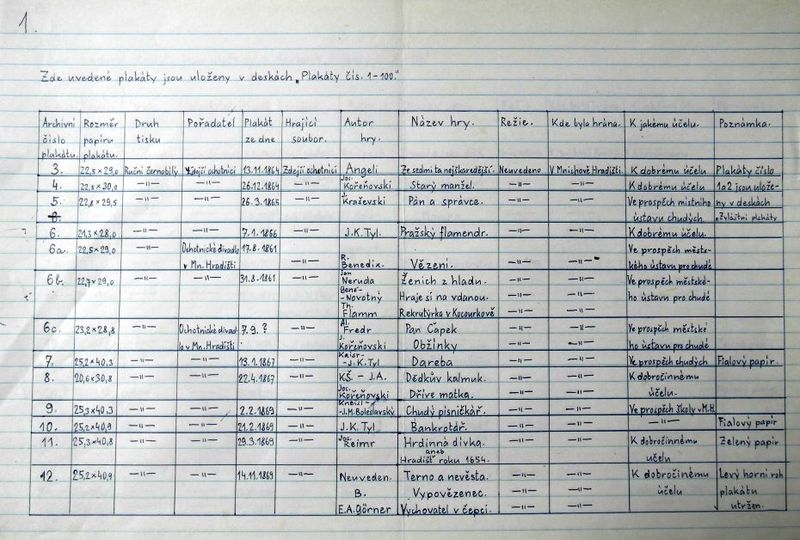 1.
Zde uvedené plakáty jsou uloženy v deskách „Plakáty čís. 1-100."
Archivní číslo plakátu. Rozměr papíru plakátu. Druh tisku Pořadatel Plakát ze dne Hrající soubor. Autor hry. Název hry. Režie. Kde byla hrána. K jakému účelu. Poznámka.
3. 22,5×29,0 Ruční černobílý Zdejší ochotníci 13.11.1864 Zdejší ochotníci Angeli Ze sedmi ta nejškaredější. Neuvedeno V Mnichově Hradišti K dobrému účelu Plakáty číslo
4. 22,5×30,0 —"— —"— 26.12.1864 —"— Jos. Kořeňovski Starý manžel. —"— —"— K dobrému účelu 1a2 jsou ulože-
5. 22,8×29,5 —"— —"— 26.3.1865 —"— J. Kraževski Pán a správce. —"— —"— Ve prospěch místního ny v deskách
ústavu chudých „Zvláštní plakáty
6. 21,3×28,0 —"— —"— 7.1.1866 —"— J.K.Tyl. Pražský flamendr. —"— —"— K dobrému účelu.
6a. 22,5×29,0 —"— Ochotnické divadlo 17.8.1861 Ve prospěch městs-
v Mn. Hradišti —"— R. Benedix. Vězení. —"— —"— kého ústavu pro chudé
6b. 22,7×29,0 —"— —"— 31.8.1861 —"— Jan Neruda Ženich z hladu. —"— —"— Ve prospěch městské-
Bené- -Novotný Hraje si na vdanou. —"— —"— ho ústavu pro chudé
Th. Flamm Rekrutýrka v Kocourkově —"— —"—
6c. 23,2×28,8 —"— Ochotnické divad 7.9. ? —"— Al. Fredr Pan Čapek —"— —"— Ve prospěch městské
lo v Mn. Hradišti J. Kořeňovski Obžínky —"— —"— ho ústavu pro chudé
7. 25,2×40,3 —"— —"— 13.1.1867 —"— - J.K.Tyl Dareba —"— —"— Ve prospěch chudých Fialový papír.
8. 20,6×30,8 —"— —"— 22.4.1867 —"— KŠ. - J.A. Dědkův kalmuk. —"— —"— K dobročinnému
Jos. Kořeňovski Dříve matka. —"— —"— účelu.
9. 25,3×40,3 —"— —"— 2.2.1869 —"— -J.M.Boleslavský Chudý písničkář. —"— —"— Ve prospěch školy v M.H.
10. 25,2×40,9 —"— —"— 21.2.1869 —"— J.K.Tyl. Bankrotář. —"— —"— —"— Fialový papír
11. 25,3×40,8 —"— —"— 29.3.1869 —"— Jos. Reimr Hrdinná dívka. —"— —"— K dobročinnému Zelený papír
aneb Hradišť roku 1654. účelu
12. 25,2×40,9 —"— —"— 14.11.1869 —"— Neuveden. Terno a nevěsta. —"— —"— K dobročinému Levý horní roh
B. Vypovězenec. —"— —"— účelu plakátu
E.A.Görner Vychovatel v čepci. —"— —"— utržen.